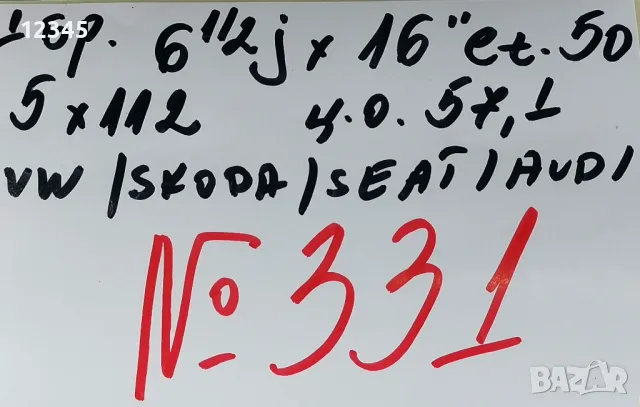 12345
1 бр. 6 1/2 j x 16" et. 50
5 x 112 ц.о. 57,1
VW / SKODA / SEAT / AUDI
№ 331
BAZAR